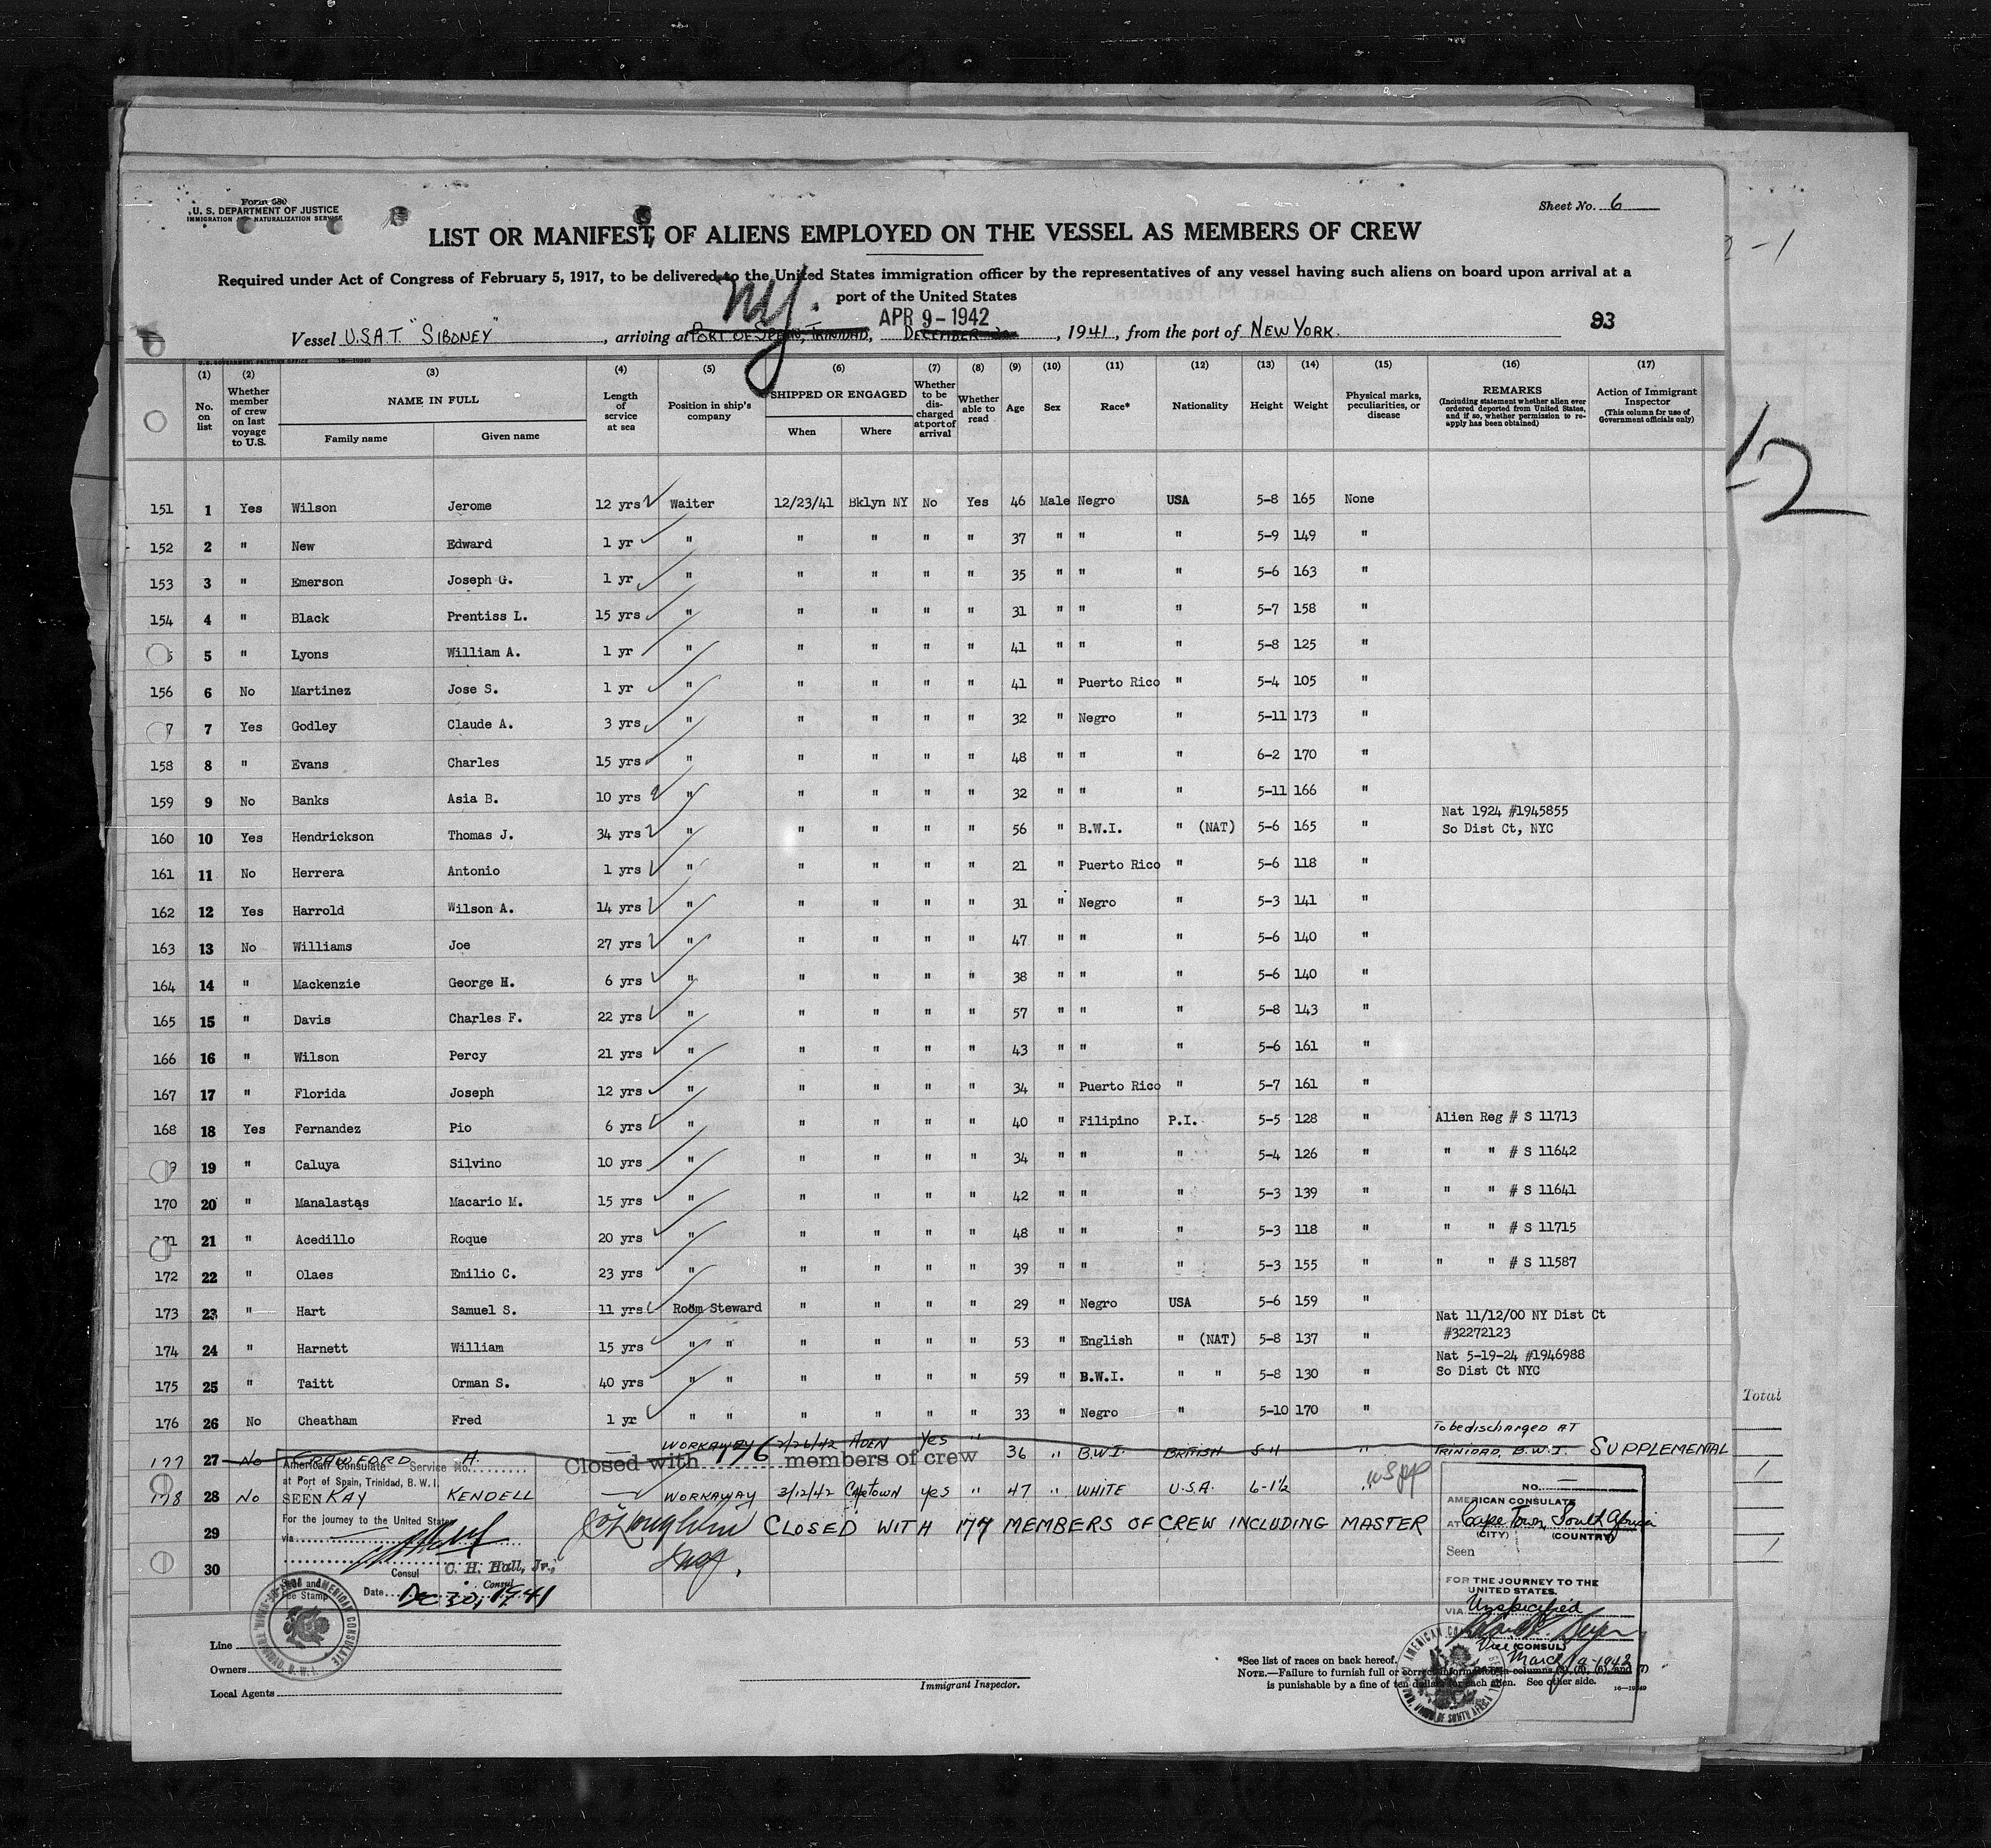 Form 680
U. S. DEPARTMENT OF JUSTICE
IMMIGRATION NATURALIZATION SERVICE
Sheet No. 6
LIST OR MANIFEST OF ALIENS EMPLOYED ON THE VESSEL AS MEMBERS OF CREW
Required under Act of Congress of February 5, 1917, to be delivered to the United States immigration officer by the representatives of any vessel having such aliens on board upon arrival at a
port of the United States
N.Y.
APR 9 - 1942
93
Vessel U.S.A.T. "SIBONEY", arriving at PORT OF SPAIN, TRINIDAD, DECEMBER 30, 1941, from the port of NEW YORK.
U.S. GOVERNMENT PRINTING OFFICE 16—19949
(1) (2) (3) (4) (5) (6) (7) (8) (9) (10) (11) (12) (13) (14) (15) (16) (17)
No. on list
Whether member of crew on last voyage to U.S.
NAME IN FULL
Family name
Given name
Length of service at sea
Position in ship's company
SHIPPED OR ENGAGED
When
Where
Whether to be discharged at port of arrival
Whether able to read
Age
Sex
Race*
Nationality
Height
Weight
Physical marks, peculiarities, or disease
REMARKS
(Including statement whether alien ever ordered deported from United States, and if so, whether permission to reapply has been obtained)
Action of Immigrant Inspector
(This column for use of Government officials only)
151 1 Yes Wilson Jerome 12 yrs Waiter 12/23/41 Bklyn NY No Yes 46 Male Negro USA 5-8 165 None
152 2 " New Edward 1 yr " " " " " 37 " " " 5-9 149 "
153 3 " Emerson Joseph G. 1 yr " " " " " 35 " " " 5-6 163 "
154 4 " Black Prentiss L. 15 yrs " " " " " 31 " " " 5-7 158 "
5 5 " Lyons William A. 1 yr " " " " " 41 " " " 5-8 125 "
156 6 No Martinez Jose S. 1 yr " " " " " 41 " Puerto Rico " 5-4 105 "
7 7 Yes Godley Claude A. 3 yrs " " " " " 32 " Negro " 5-11 173 "
158 8 " Evans Charles 15 yrs " " " " " 48 " " " 6-2 170 "
159 9 No Banks Asia B. 10 yrs " " " " " 32 " " " 5-11 166 "
160 10 Yes Hendrickson Thomas J. 34 yrs " " " " " 56 " B.W.I. " (NAT) 5-6 165 " Nat 1924 #1945855
So Dist Ct, NYC
161 11 No Herrera Antonio 1 yrs " " " " " 21 " Puerto Rico " 5-6 118 "
162 12 Yes Harrold Wilson A. 14 yrs " " " " " 31 " Negro " 5-3 141 "
163 13 No Williams Joe 27 yrs " " " " " 47 " " " 5-6 140 "
164 14 " Mackenzie George H. 6 yrs " " " " " 38 " " " 5-6 140 "
165 15 " Davis Charles F. 22 yrs " " " " " 57 " " " 5-8 143 "
166 16 " Wilson Percy 21 yrs " " " " " 43 " " " 5-6 161 "
167 17 " Florida Joseph 12 yrs " " " " " 34 " Puerto Rico " 5-7 161 "
168 18 Yes Fernandez Pio 6 yrs " " " " " 40 " Filipino P.I. 5-5 128 " Alien Reg # S 11713
9 19 " Caluya Silvino 10 yrs " " " " " 34 " " " 5-4 126 " " " # S 11642
170 20 " Manalastas Macario M. 15 yrs " " " " " 42 " " " 5-3 139 " " " # S 11641
71 21 " Acedillo Roque 20 yrs " " " " " 48 " " " 5-3 118 " " " # S 11715
172 22 " Olaes Emilio C. 23 yrs " " " " " 39 " " " 5-3 155 " " " # S 11587
173 23 " Hart Samuel S. 11 yrs Room Steward " " " " 29 " Negro USA 5-6 159 "
174 24 " Harnett William 15 yrs " " " " " " 53 " English " (NAT) 5-8 137 " Nat 11/12/00 NY Dist Ct
#32272123
175 25 " Taitt Orman S. 40 yrs " " " " " " 59 " B.W.I. " " 5-8 130 " Nat 5-19-24 #1946988
So Dist Ct NYC
176 26 No Cheatham Fred 1 yr " " " " " " 33 " Negro " 5-10 170 "
177 27 No CRAWFORD A. — WORKAWAY 2/26/42 ADEN Yes " 36 " B.W.I. BRITISH 5-11 " To be discharged AT
TRINIDAD, B.W.I. SUPPLEMENTAL
Closed with 176 members of crew
178 28 No KAY KENDELL — WORKAWAY 3/12/42 CAPETOWN yes " 47 " WHITE U.S.A. 6-1½ " USPP
29 CLOSED WITH 177 MEMBERS OF CREW INCLUDING MASTER
30
American Consulate Service No.
at Port of Spain, Trinidad, B. W. I.
SEEN
For the journey to the United States
via
Consul C. H. Hall, Jr.,
Consul
Date Dec 30, 1941
Fee Stamp
AMERICAN CONSULATE
NO. —
AMERICAN CONSULATE
AT Cape Town, South Africa
(CITY) (COUNTRY)
Seen
FOR THE JOURNEY TO THE
UNITED STATES.
VIA Unspecified
Vice (CONSUL)
Line
Owners
Local Agents
Immigrant Inspector.
*See list of races on back hereof.
NOTE.—Failure to furnish full or correct information in columns (3), (5), (6), and (7)
is punishable by a fine of ten dollars for each alien. See other side.
16—19949
Total
12